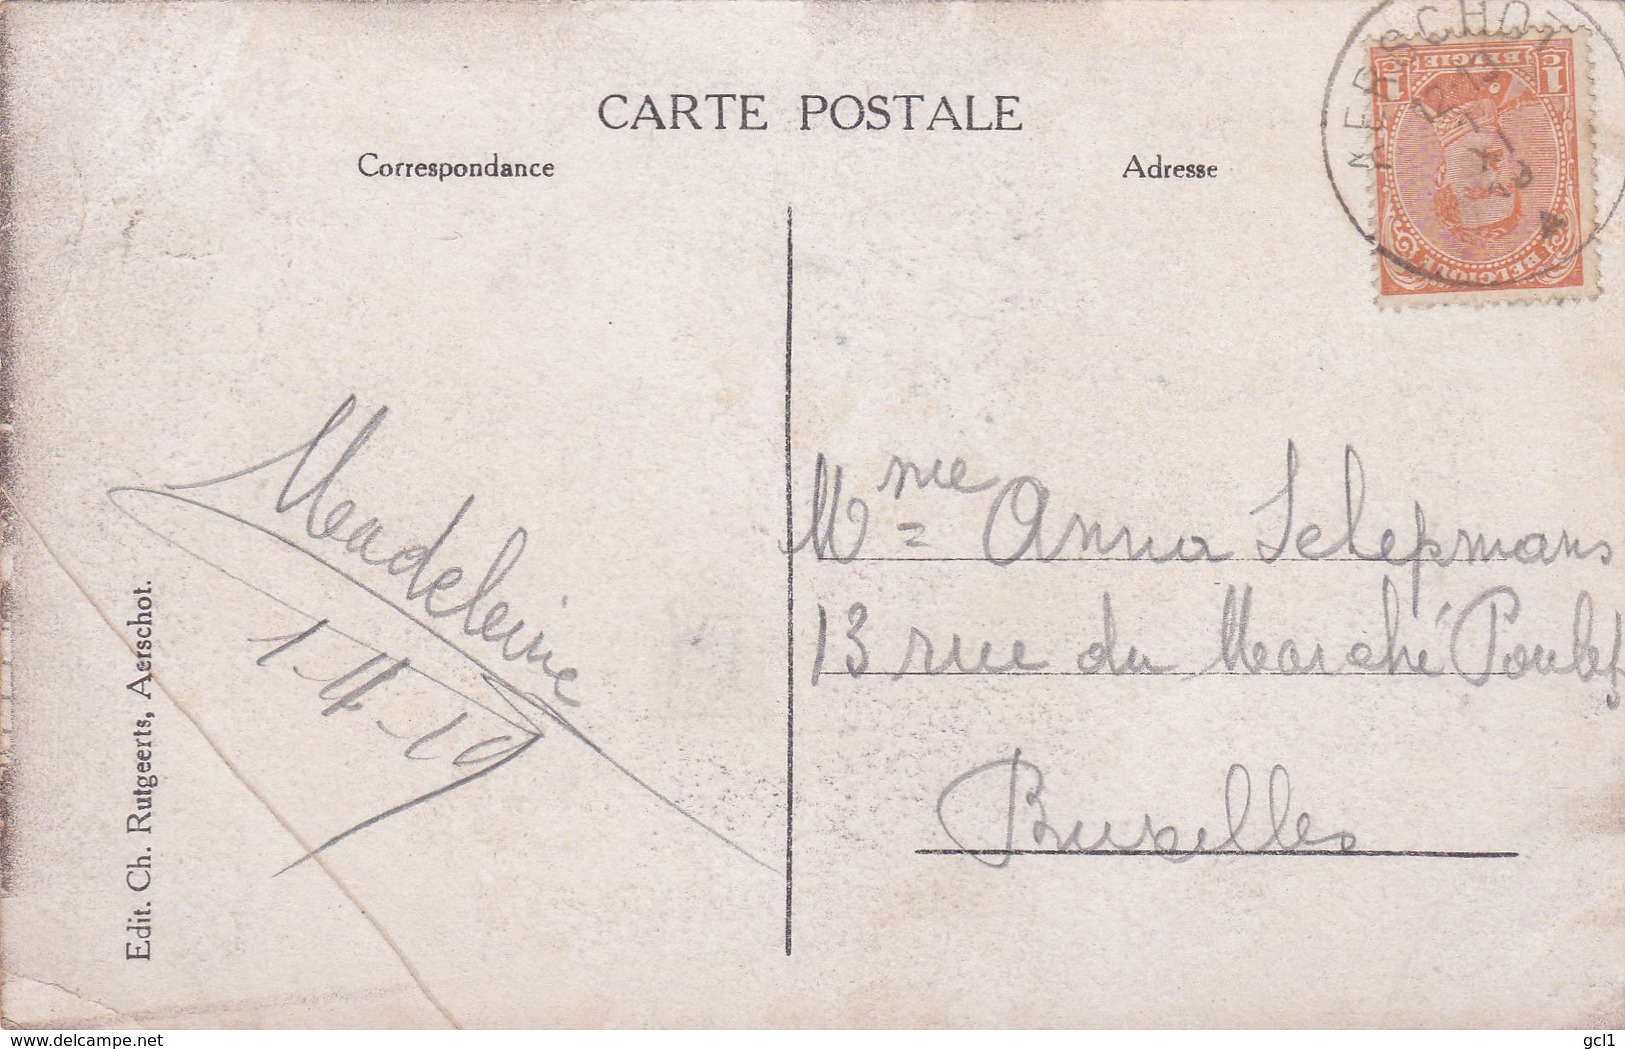 CARTE POSTALE
Correspondance
Adresse
AERSCHOT
12-13
1c BELGIE 1c
BELGIQUE
Madeleine
1-11-19
Mme Anna Selepmans
13 rue du Marché Poulets
Bruxelles
Edit. Ch. Rutgeerts, Aerschot.
www.delcampe.net
gcl1